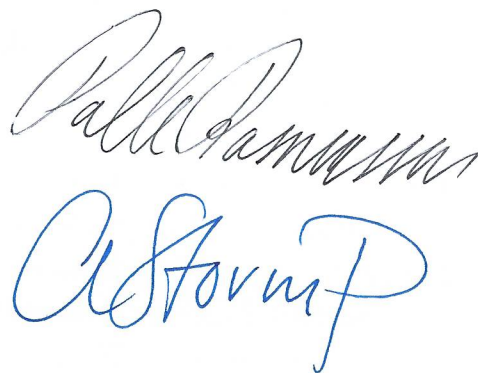 Palle Rasmussen
A Storm P